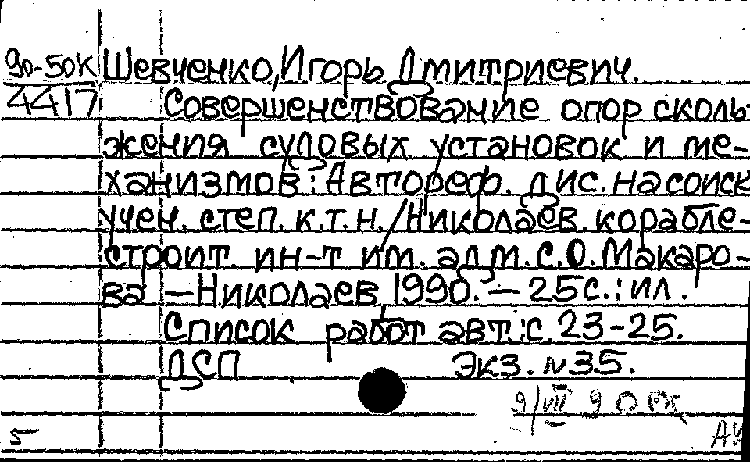 90-50к Шевченко, Игорь Дмитриевич.
4417 Совершенствование опор сколь-
жения судовых установок и ме-
ханизмов: Автореф. дис. на соиск
учен. степ. к.т.н. / Николаев. корабле-
строит. ин-т им. адм. С.О. Макаро-
ва. — Николаев, 1990. — 25 с.: ил.
Список работ авт.: с. 23-25.
ДСП Экз. № 35.
9/VII 90
5